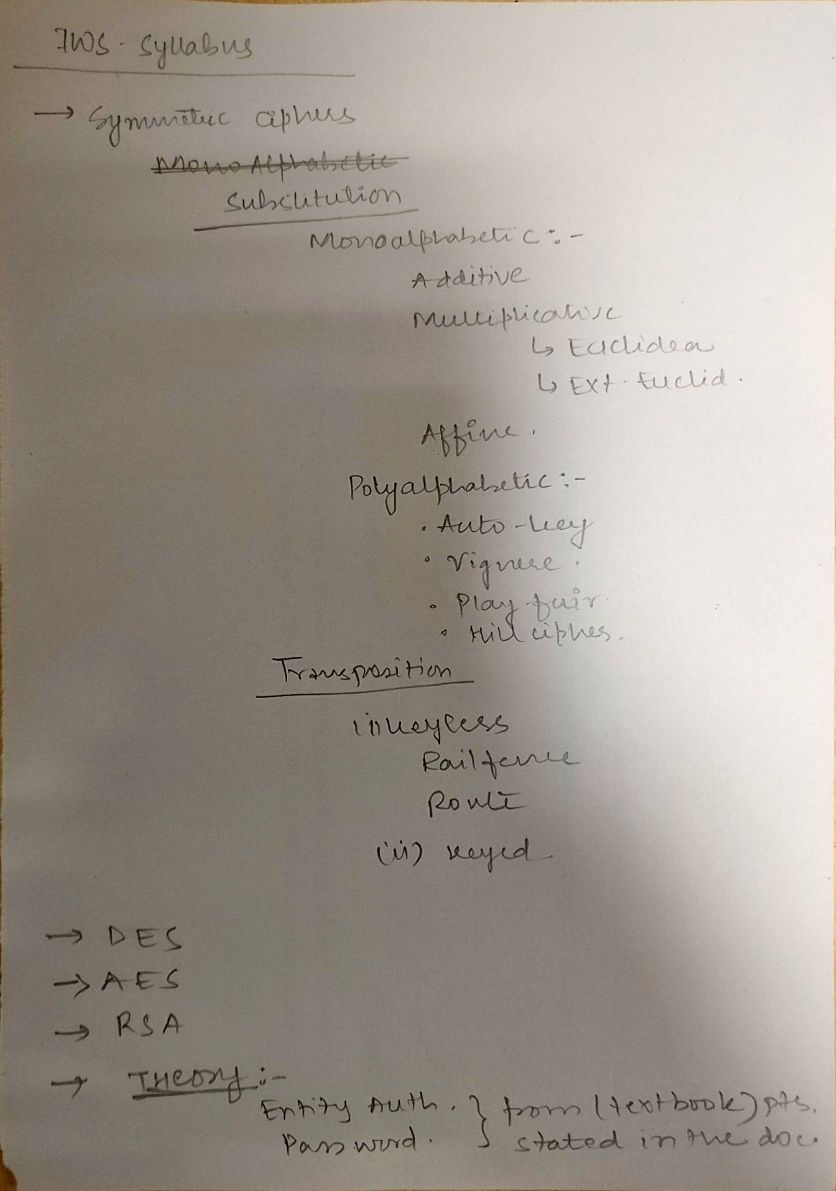 IWS - Syllabus
→ Symmetric ciphers
Mono Alphabetic
Substitution
Monoalphabetic :-
Additive
Multiplicative
↳ Euclidea
↳ Ext. Euclid.
Affine.
Polyalphabetic :-
• Auto-key
• Vignere.
• Play fair
• Hill cipher.
Transposition
i) keyless
Railfence
Route
(ii) keyed
→ DES
→ AES
→ RSA
→ Theory :-
Entity Auth. } from (textbook) pts.
Password. } stated in the doc.